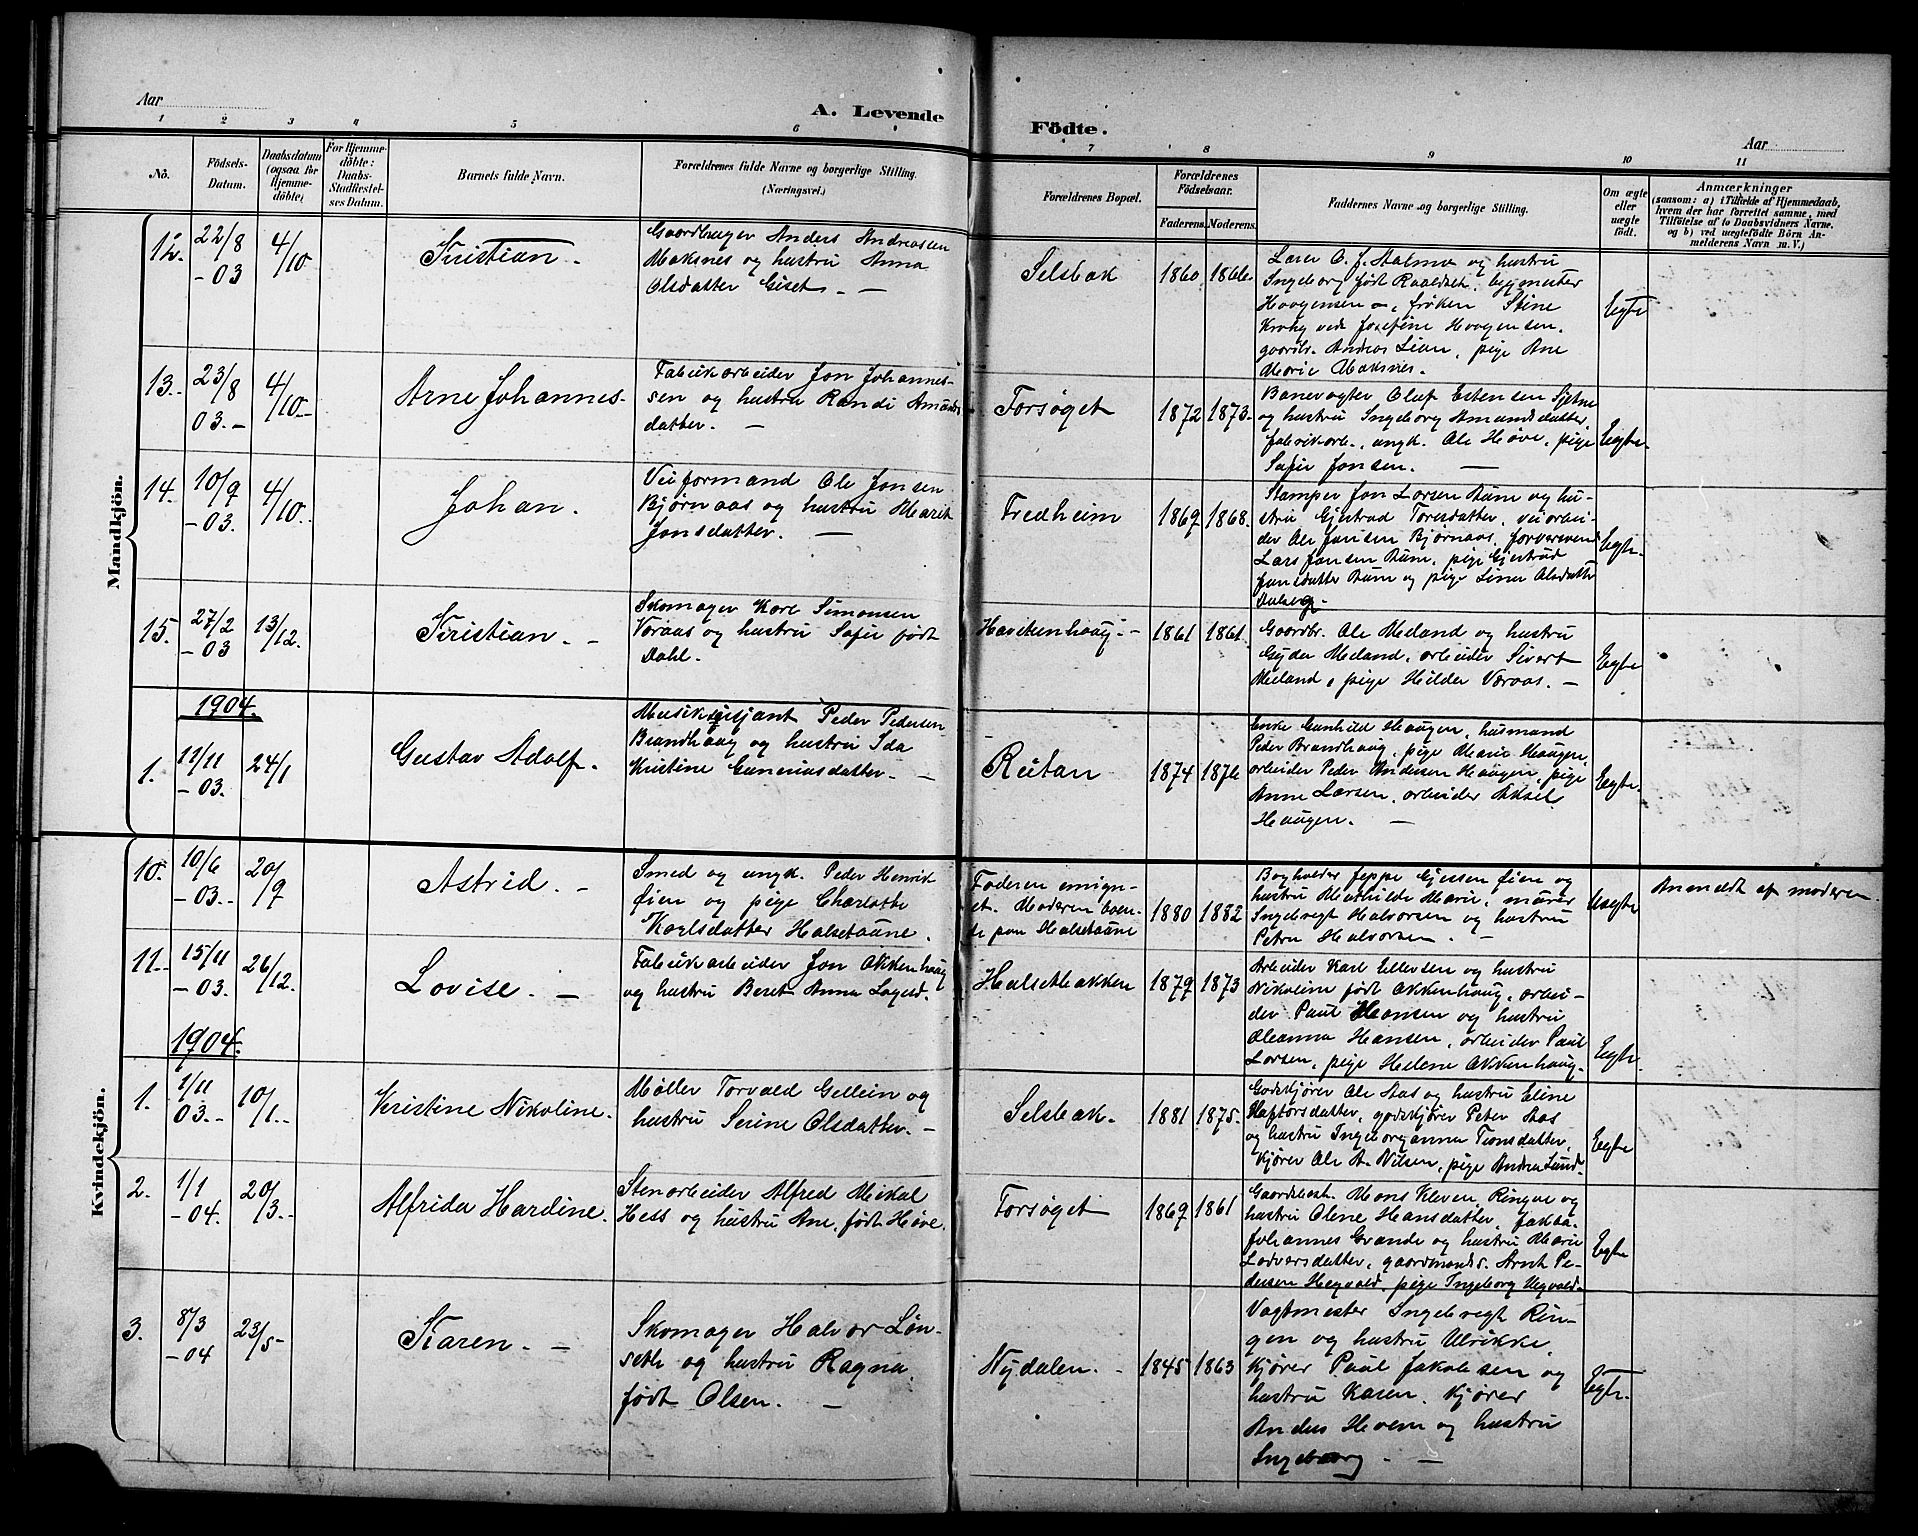 Aar
A. Levende
Födte.
Aar
1 2 3 4 5 6 7 8 9 10 11
No.
Födsels-
Datum.
Daabsdatum
(ogsaa for
Hjemme-
döbte)
For Hjemme-
döbte:
Daabs-
Stadfæstel-
ses Datum.
Barnets fulde Navn.
Forældrenes fulde Navne og borgerlige Stilling.
(Næringsvei.)
Forældrenes Bopæl.
Forældrenes
Födselsaar.
Faderens.
Moderens.
Faddernes Navne og borgerlige Stilling.
Om ægte
eller
uægte
födt.
Anmærkninger
(saasom: a) i Tilfælde af Hjemmedaab,
hvem der har forrettet samme, med
Tilföielse af to Daabsvidners Navne.
og b) ved uægtefödte Börn An-
melderens Navn m. V.)
Mandkjön.
12. 22/8 -03 4/10 Kristian. -
Gaardbruger Anders Andreassen
Maksnes og hustru Anna
Olsdatter Giset. -
Selsbak 1860 1866.
Ingeborg født
Haagensen -, frøken Stine
Krohg ved Josefine Haagensen.
gaardbr. Andreas Lian, pige Ane
Marie Maksnes.
Egte
13. 23/8 03. - 4/10 - Arne Johannes -
Fabrikarbeider Jon Johannes-
sen og hustru Randi Amunds
datter. -
Forsøget 1872 1873.
Banevogter Oluf Estensen Sjetne
og hustru Ingeborg Amundsdatter,
fabrikarb., ungk. Ole Høve, pige
Sofie Jonsen. -
Egte.
14. 10/9 -03. 4/10. Johan.
Veiformand Ole Jonsen
Bjørnaas og hustru Marit
Jonsdatter. -
Fredheim 1869 1868.
Stamper Jon Larsen Bum og hu-
stru Gjertrud Toresdatter, veiarbei-
der Ole Jansen Bjørnaas,
Lars Jansen Bum, pige Gjertrud
Jansdatter Bum og pige Lina Olsdatter
Egte.
15. 27/2 -03 13/12. Kristian. -
Skomager Karl Simonsen
Voraas og hustru Sofie født
Dahl.
Havekenhaug. - 1861 1861.
Gaardbr. Ole Meland og hustru
Gyda Meland, arbeider Sivert
Meland, pige Hilda Voraas. -
Egte
1904.
1. 11/11 -03. 24/1 Gustav Adolf.
Musiksersjant Peder Pedersen
Brandhaug og hustru Ida
Kristine Guneriusdatter. -
Rútan 1874 1876
Enke Gunhild Haugen, husmand
Peder Brandhaug, pige Marie Haugen,
arbeider Peder Andersen Haugen, pige
Anne Larsen, arbeider Aksel
Haugen. -
Egte.
Kvindekjön.
10. 10/6 -03. - 20/9 Astrid. -
Smed og ungk. Peder Henrik
Øien og pige Charlotte
Karlsdatter Halsetaune.
Faderen emigre-
et. Moderen boen-
de paa Halsetaune
1880 1882
Bogholder Jeppe Gjersen Øien og
hustru Mathilde Marie, murer
Ingebregt Halvorsen og hustru
Petra Halvorsen. -
Uegte
Anmeldt af moderen.
11. 15/11 -03. 26/12. Lovise. -
Fabrikarbeider Jon Okkenhaug
og hustru Beret Anna
Halsetbakken 1879 1873
Arbeider Karl Ellevsen og hustru
Nikoline født Okkenhaug, arbei-
der Paul Hansen og hustru
Oleanna Hansen, arbeider Paul
Larsen, pige Helene Okkenhaug.
Egte
1904.
1. 1/11 03. - 10/1. - Kristine Nikoline.
Møller Torvald Gellein og
hustru Serine Olsdatter. -
Selsbak. 1881 1875.
Godskjører Ole Aas og hustru Eline
Haftorsdatter, godskjører Peter Aas
og hustru Ingeborganna Tronsdatter,
kjører Ole A. Nilsen, pige Andrea Lund
Egte
2. 1/1 -04. 20/3. - Alfrida Hardine.
Stenarbeider Alfred Mikal
Hess og hustru Ane, født Høve.
Forsøget 1869 1861
Gaardbest. Mons Kleven, Ringve og
hustru Olene Hansdatter,
Johannes Grande og hustru Marie
Lodversdatter, gaardmands. Arnt Pe-
dersen Hegvold, pige Ingeborg Hegvold.
Egte
3. 8/3 -04 23/5 - Karen. -
Skomager Halvor Løn-
seth og hustru Ragna,
født Olsen. -
Nydalen. - 1845 1863
Vagtmester Ingebregt Rin-
gen og hustru Ulrikke,
kjører Paul Jakobsen og
hustru Karen, kjører
Anders Hoem og hustru
Ingeborg. -
Egte.